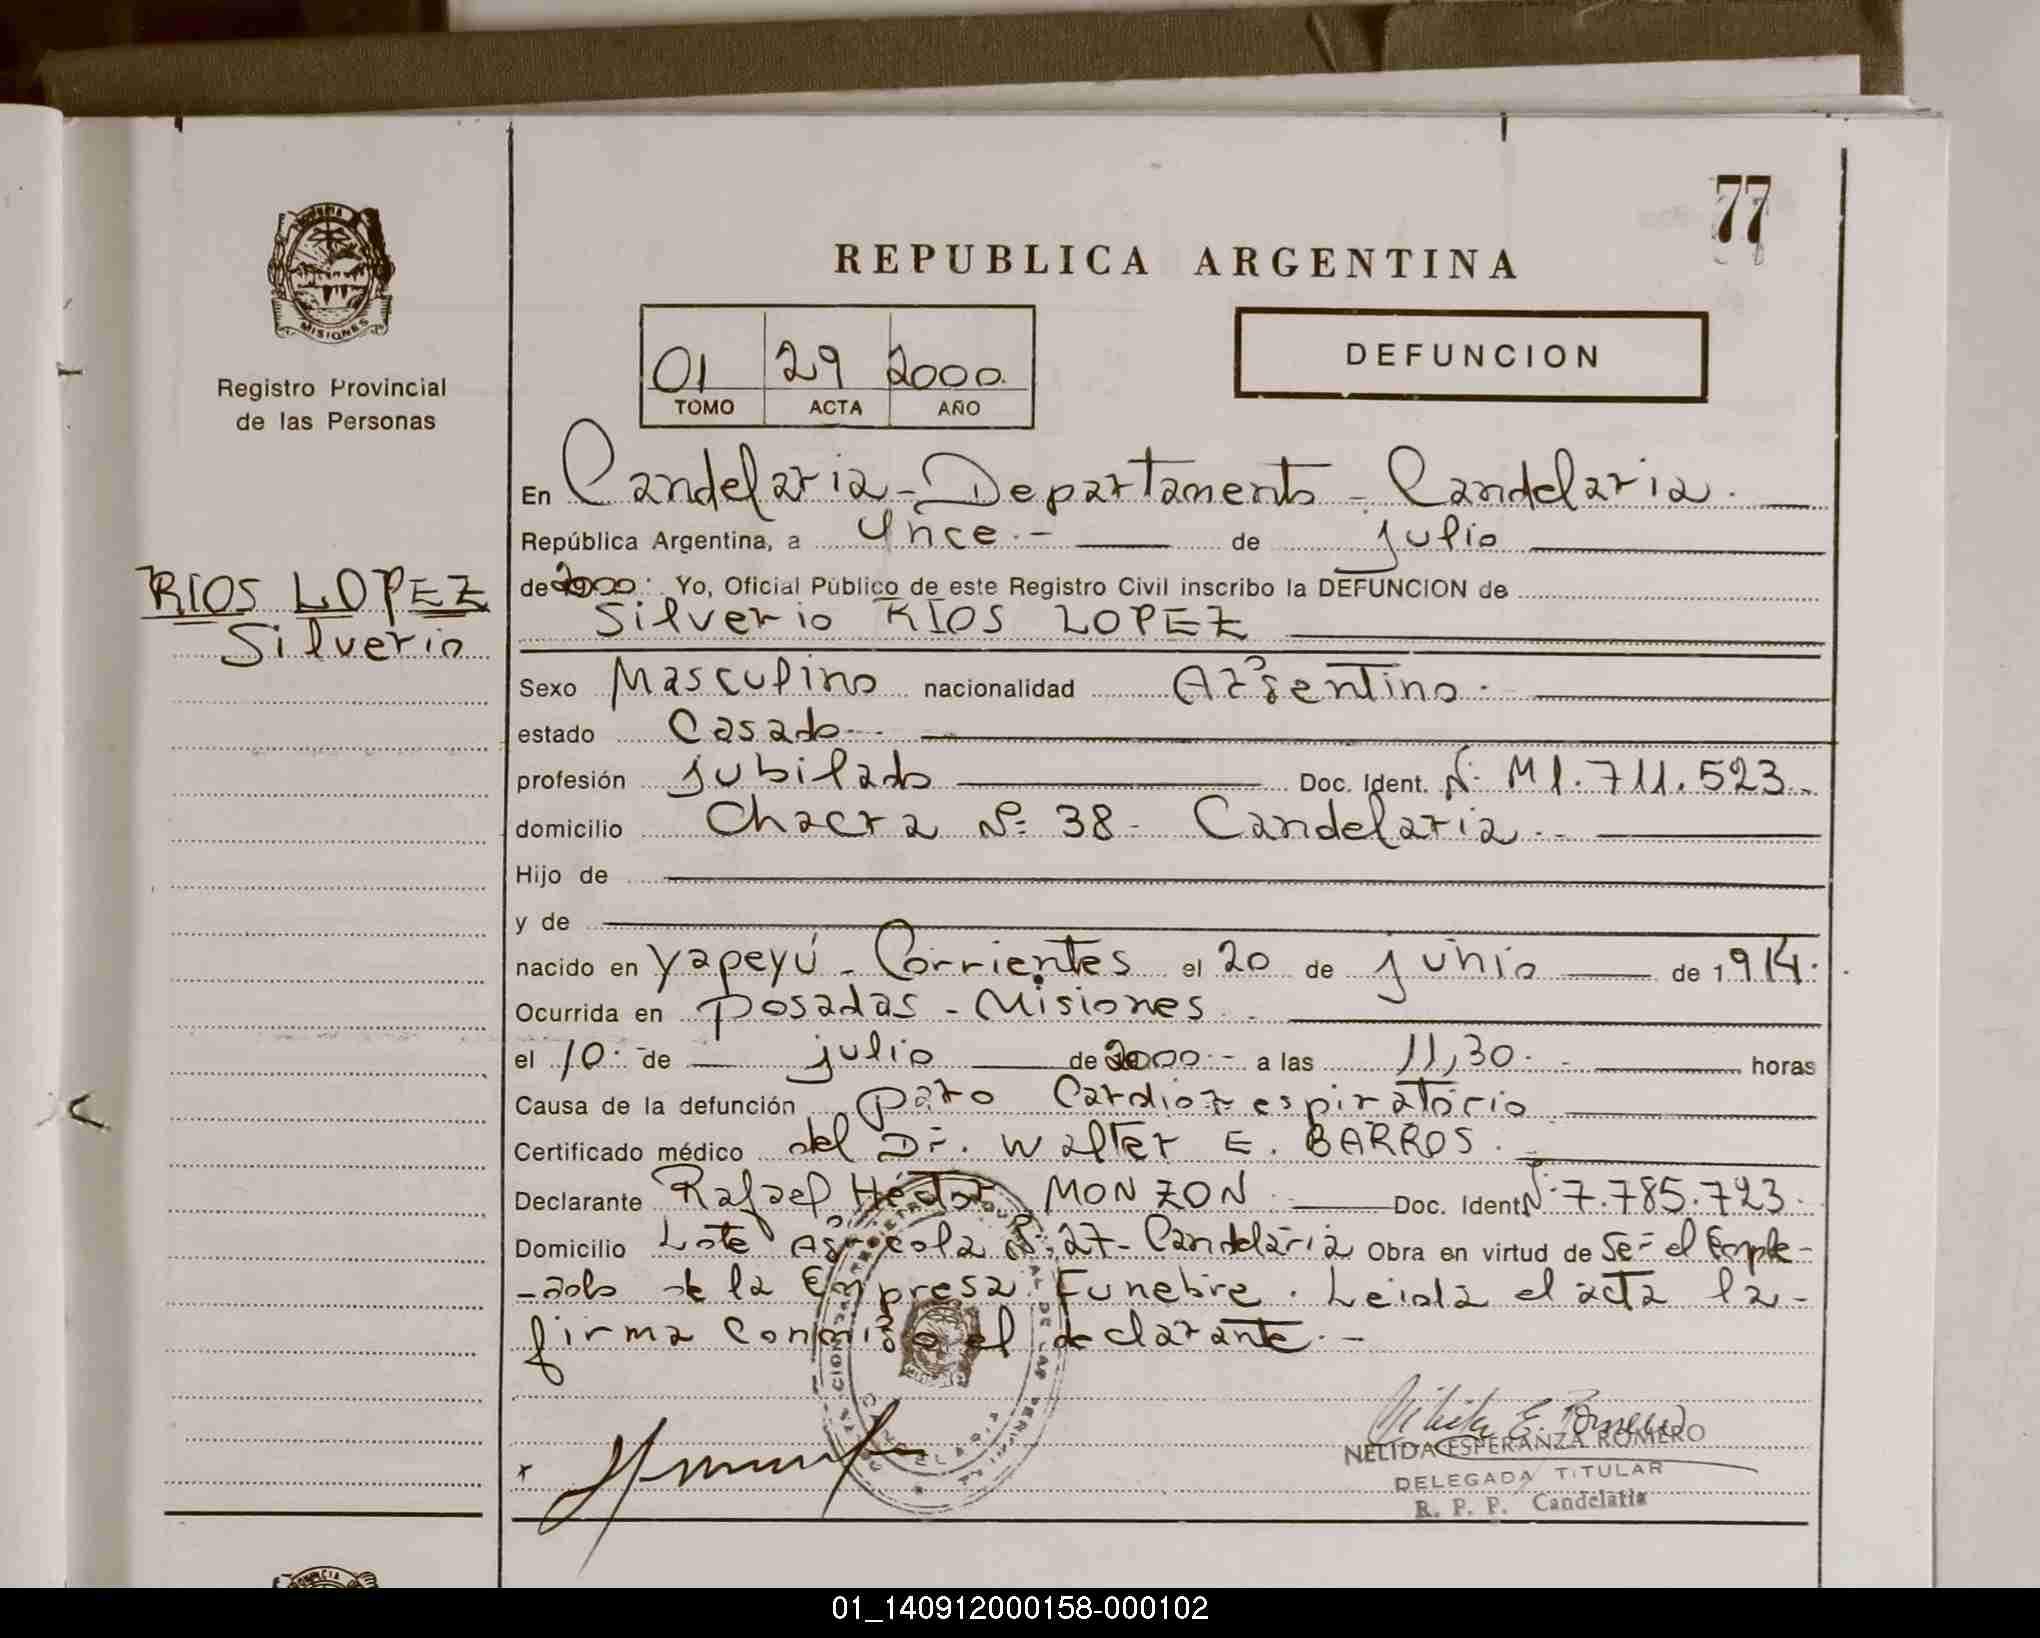 77
REPUBLICA ARGENTINA
MISIONES
Registro Provincial
de las Personas
01 29 2000
TOMO ACTA AÑO
DEFUNCION
En Candelaria - Departamento - Candelaria.
República Argentina, a Once.- de julio
de 2000. Yo, Oficial Público de este Registro Civil inscribo la DEFUNCION de
RIOS LOPEZ
Silverio
Silverio RIOS LOPEZ
Sexo Masculino nacionalidad Argentino.
estado Casado--
profesión jubilado Doc. Ident. Nº M 1.711.523.
domicilio Chacra Nº 38 - Candelaria.-
Hijo de
y de
nacido en Yapeyú - Corrientes el 20 de junio de 1914.
Ocurrida en Posadas - Misiones
el 10. de julio de 2000.- a las 11,30. horas
Causa de la defunción paro Cardiorespiratorio
Certificado médico del Dr. Walter E. BARROS.
Declarante Rafael Héctor MONZON Doc. Ident. Nº 7.785.723.
Domicilio Lote Agrícola Nº 27- Candelaria Obra en virtud de Ser el Emple-
-ado de la Empresa Funebre. Leida el acta la-
firma conmigo el declarante.-
x
NELIDA ESPERANZA ROMERO
DELEGADA TITULAR
R. P. P. Candelaria
01_140912000158-000102